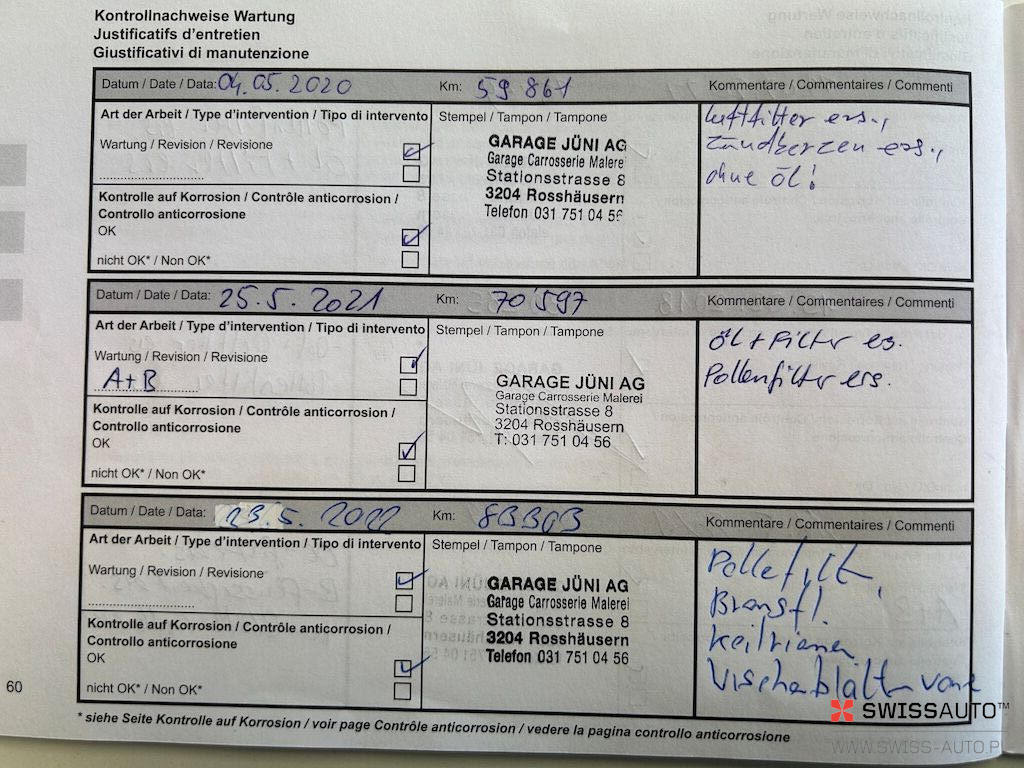 Kontrollnachweise Wartung
Justificatifs d'entretien
Giustificativi di manutenzione
Datum / Date / Data: 04.05.2020 Km: 59861 Kommentare / Commentaires / Commenti
Art der Arbeit / Type d'intervention / Tipo di intervento Stempel / Tampon / Tampone
Wartung / Revision / Revisione
Kontrolle auf Korrosion / Contrôle anticorrosion /
Controllo anticorrosione
OK
nicht OK* / Non OK*
GARAGE JÜNI AG
Garage Carrosserie Malerei
Stationsstrasse 8
3204 Rosshäusern
Telefon 031 751 04 56
Luftfilter ers.,
Zündkerzen ers.,
ohne Öl!
Datum / Date / Data: 25.5.2021 Km: 70'597 Kommentare / Commentaires / Commenti
Art der Arbeit / Type d'intervention / Tipo di intervento Stempel / Tampon / Tampone
Wartung / Revision / Revisione
A+B
Kontrolle auf Korrosion / Contrôle anticorrosion /
Controllo anticorrosione
OK
nicht OK* / Non OK*
GARAGE JÜNI AG
Garage Carrosserie Malerei
Stationsstrasse 8
3204 Rosshäusern
T: 031 751 04 56
Öl + Filter es.
Pollenfilter ers.
Datum / Date / Data: 23.5.2022 Km: Kommentare / Commentaires / Commenti
Art der Arbeit / Type d'intervention / Tipo di intervento Stempel / Tampon / Tampone
Wartung / Revision / Revisione
Kontrolle auf Korrosion / Contrôle anticorrosion /
Controllo anticorrosione
OK
nicht OK* / Non OK*
GARAGE JÜNI AG
Garage Carrosserie Malerei
Stationsstrasse 8
3204 Rosshäusern
Telefon 031 751 04 56
Pollefilt
Bremsfl.
Keilriemen
60
* siehe Seite Kontrolle auf Korrosion / voir page Contrôle anticorrosion / vedere la pagina controllo anticorrosione
SWISSAUTO™
WWW.SWISS-AUTO.P